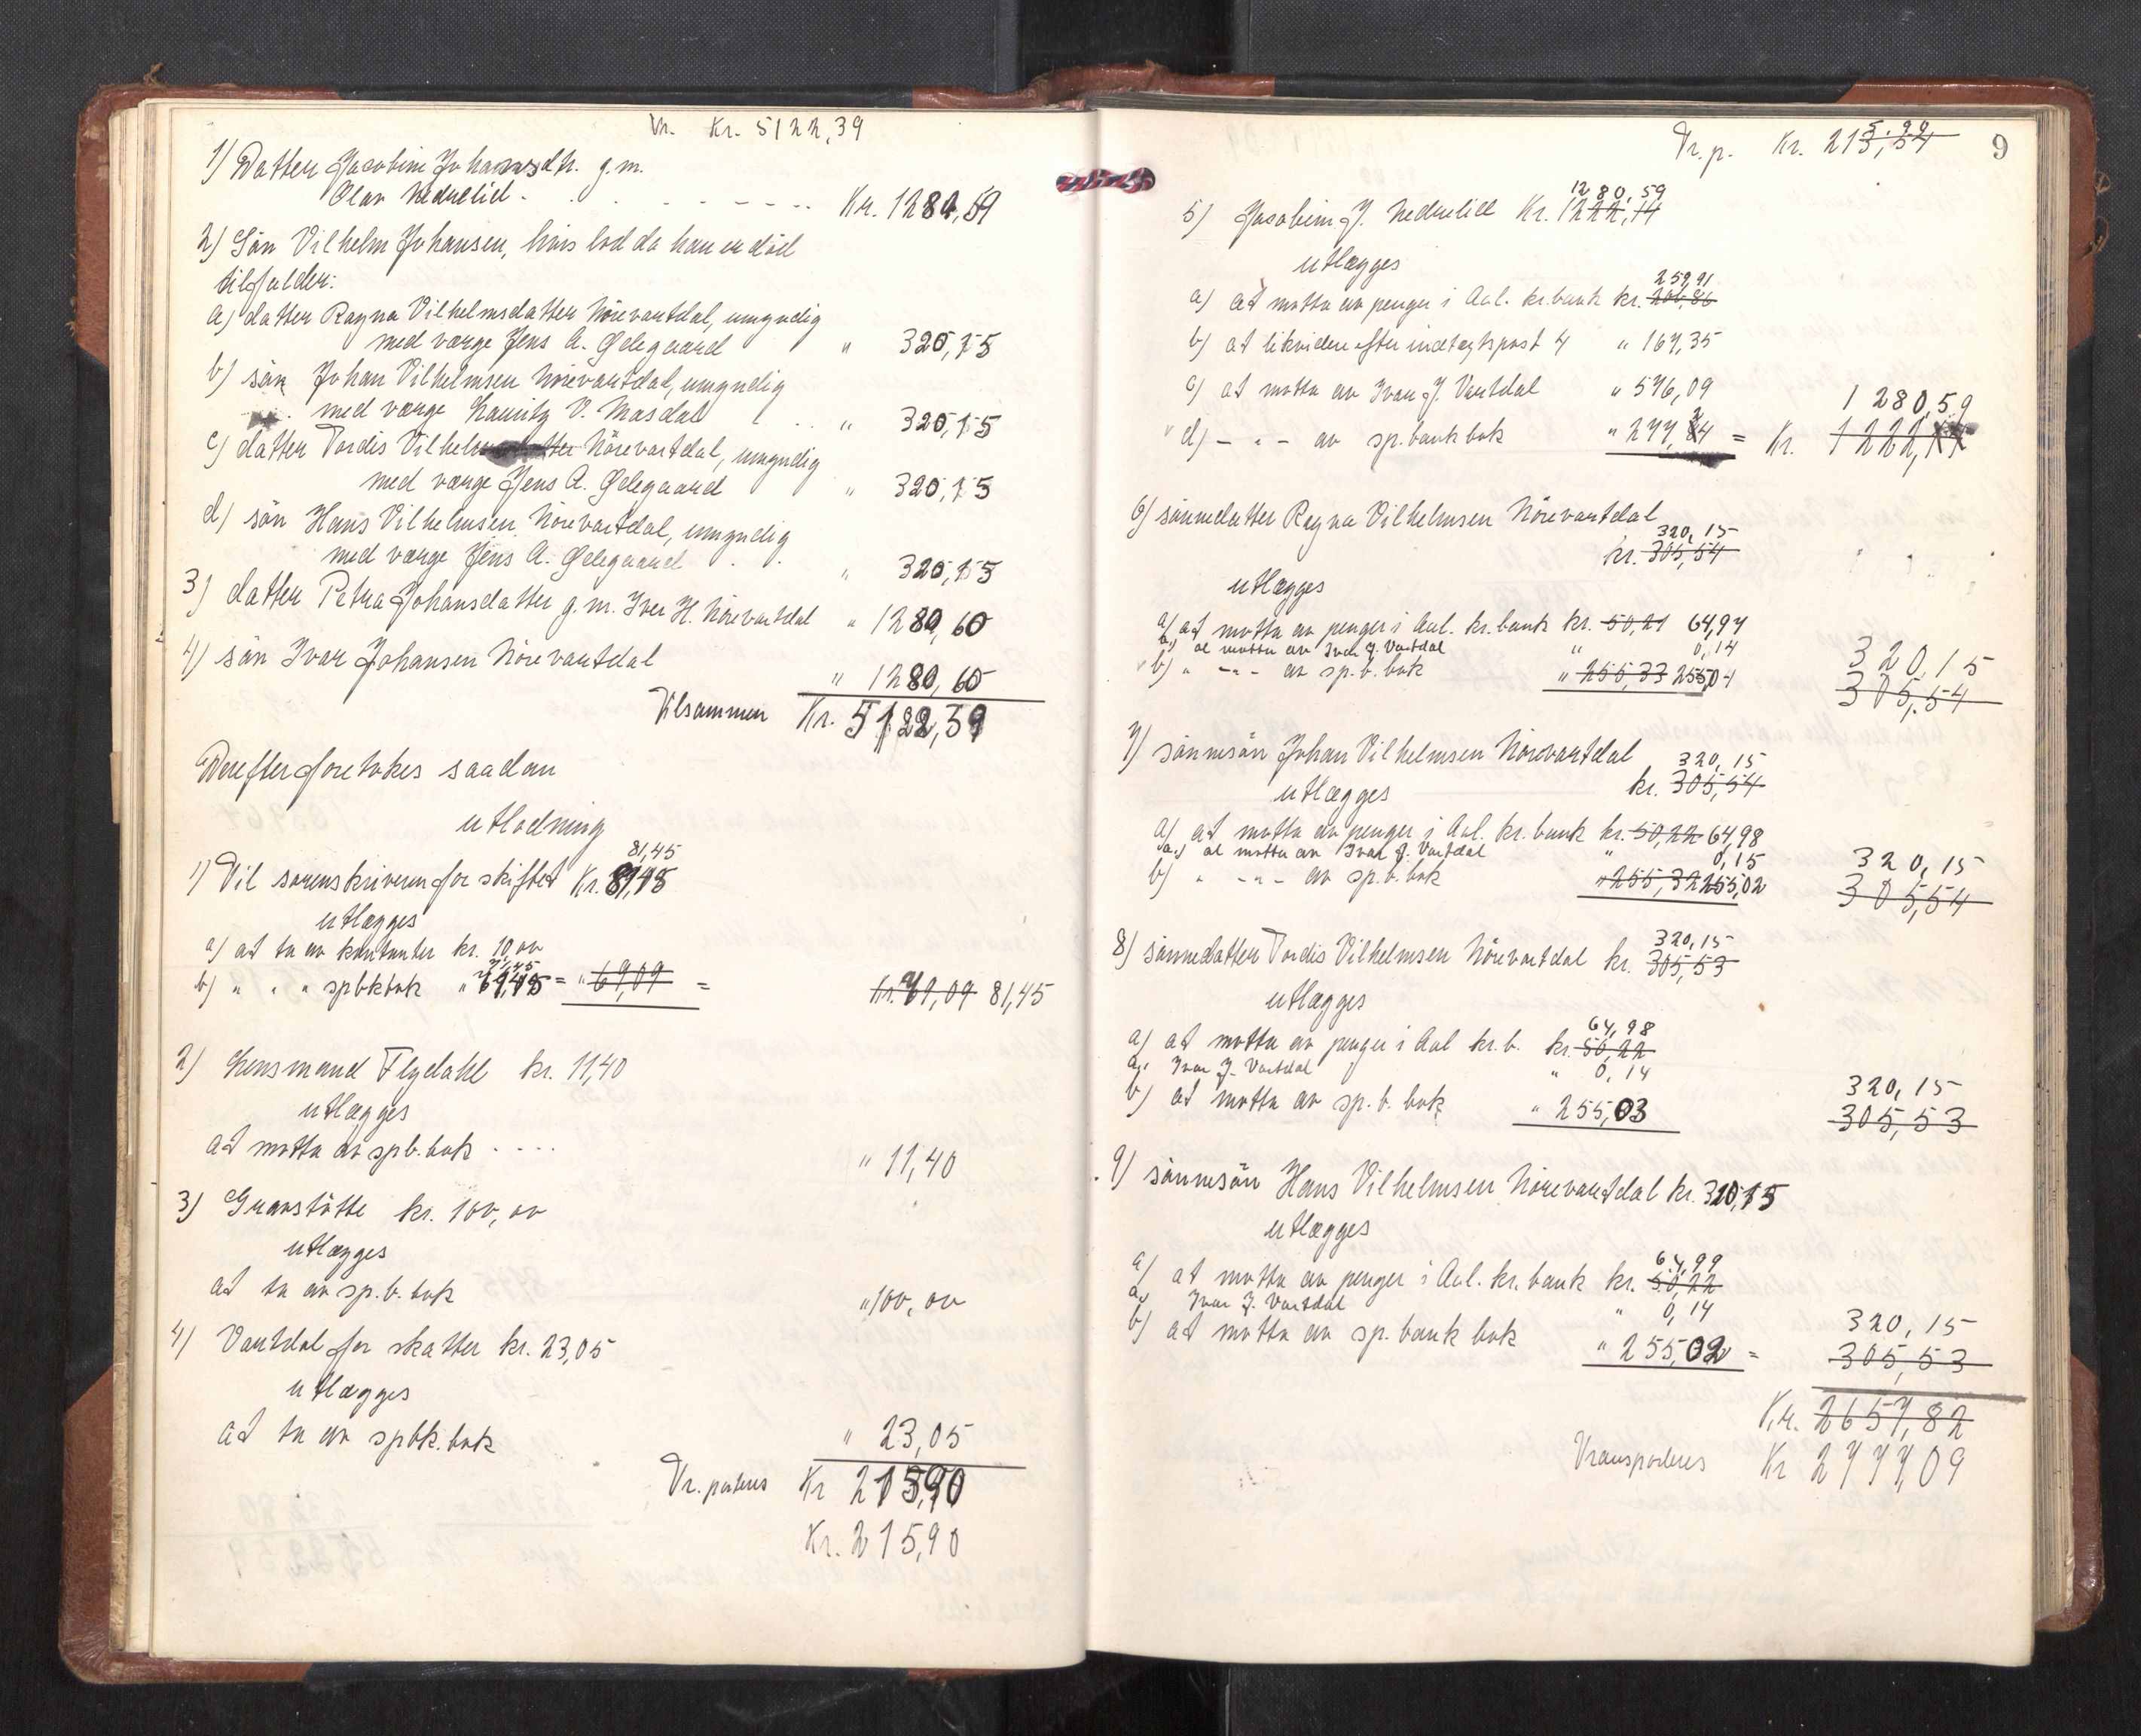 Tr. Kr. 5122,39
1) Datter Jacobine Johansdtr. g.m.
Olav Nedrelid - - - - - Kr. 1280,59
2) Sön Vilhelm Johansen, hvis lod da han er död
tilfalder:
a) datter Ragna Vilhelmsdatter Nörevartdal, umyndig
med værge Jens A. Ödegaard " 320,15
b) sön Johan Vilhelmsen Nörevartdal, umyndig
med værge Lauritz V. Masdal " 320,15
c) datter Tordis Vilhelmsdatter Nörevartdal, umyndig
med værge Jens A. Ödegaard " 320,15
d) sön Hans Vilhelmsen Nörevartdal, umyndig
med værge Jens A. Ödegaard " 320,15
3) datter Petra Johansdatter g.m. Iver H. Nörevartdal " 1280,60
4) sön Ivar Johansen Nörevartdal
" 1280,60
Tilsammen Kr. 5122,39
Derefter foretokes saadan
utlodning
81,45
1) Til sorenskriveren for skiftet Kr.
utlægges
a) at ta av kontanter kr. 10,00
71,45
b) " " " spbkbok " = " 69,09 =
81,45
2) Lensmand Flydahl kr. 11,40
utlægges
at motta av spb.bok - - - - " 11,40
3) Gravstötte kr. 100,00
utlægges
at ta av sp.b.bok " 100,00
4) Vartdal for skatter kr. 23,05
utlægges
at ta av spbk.bok " 23,05
Tr.porteres Kr 215,90
Kr. 215,90
9
Tr. p. Kr. 213,54
1280,59
5) Jacobine J. Nedrelid Kr. 1222,14
utlægges
259,91
a) at motta av penger i Aal. kr.bank kr. 201,86
b) at likvidere efter indtægtspost 4 " 167,35
c) at motta av Ivar J. Vartdal " 576,09
1280,59
d) - " - av sp.bank bok " 277,24 = Kr. 1222,14
6) sönnedatter Ragna Vilhelmsen Nörevartdal
320,15
kr. 305,54
utlægges
a) at motta av penger i Aal. kr.bank kr. 50,21 64,97
a) at motta av Ivar J. Vartdal " 0,14
320,15
b) " - " - av sp.b.bok " 255,33 255,04
305,54
7) sönnesön Johan Vilhelmsen Nörevartdal
320,15
utlægges kr. 305,54
a) at motta av penger i Aal. kr.bank kr. 50,22 64,98
a) at motta av Ivar J. Vartdal " 0,15
320,15
b) " - " - av sp.b.bok " 255,32 255,02
305,54
320,15
8) sönnedatter Tordis Vilhelmsen Nörevartdal kr. 305,53
utlægges
64,98
a) at motta av penger i Aal kr.b. kr. 50,22
a) Ivar J. Vartdal " 0,14
320,15
b) at motta av sp.b.bok " 255,03
305,53
9) sönnesön Hans Vilhelmsen Nörevartdal kr. 320,15
utlægges
64,99
a) at motta av penger i Aal. kr.bank kr. 50,22
a) Ivar J. Vartdal " 0,14
320,15
b) at motta av sp.bank bok " 255,02 =
305,53
Kr. 2657,82
Transporteres Kr 2777,09